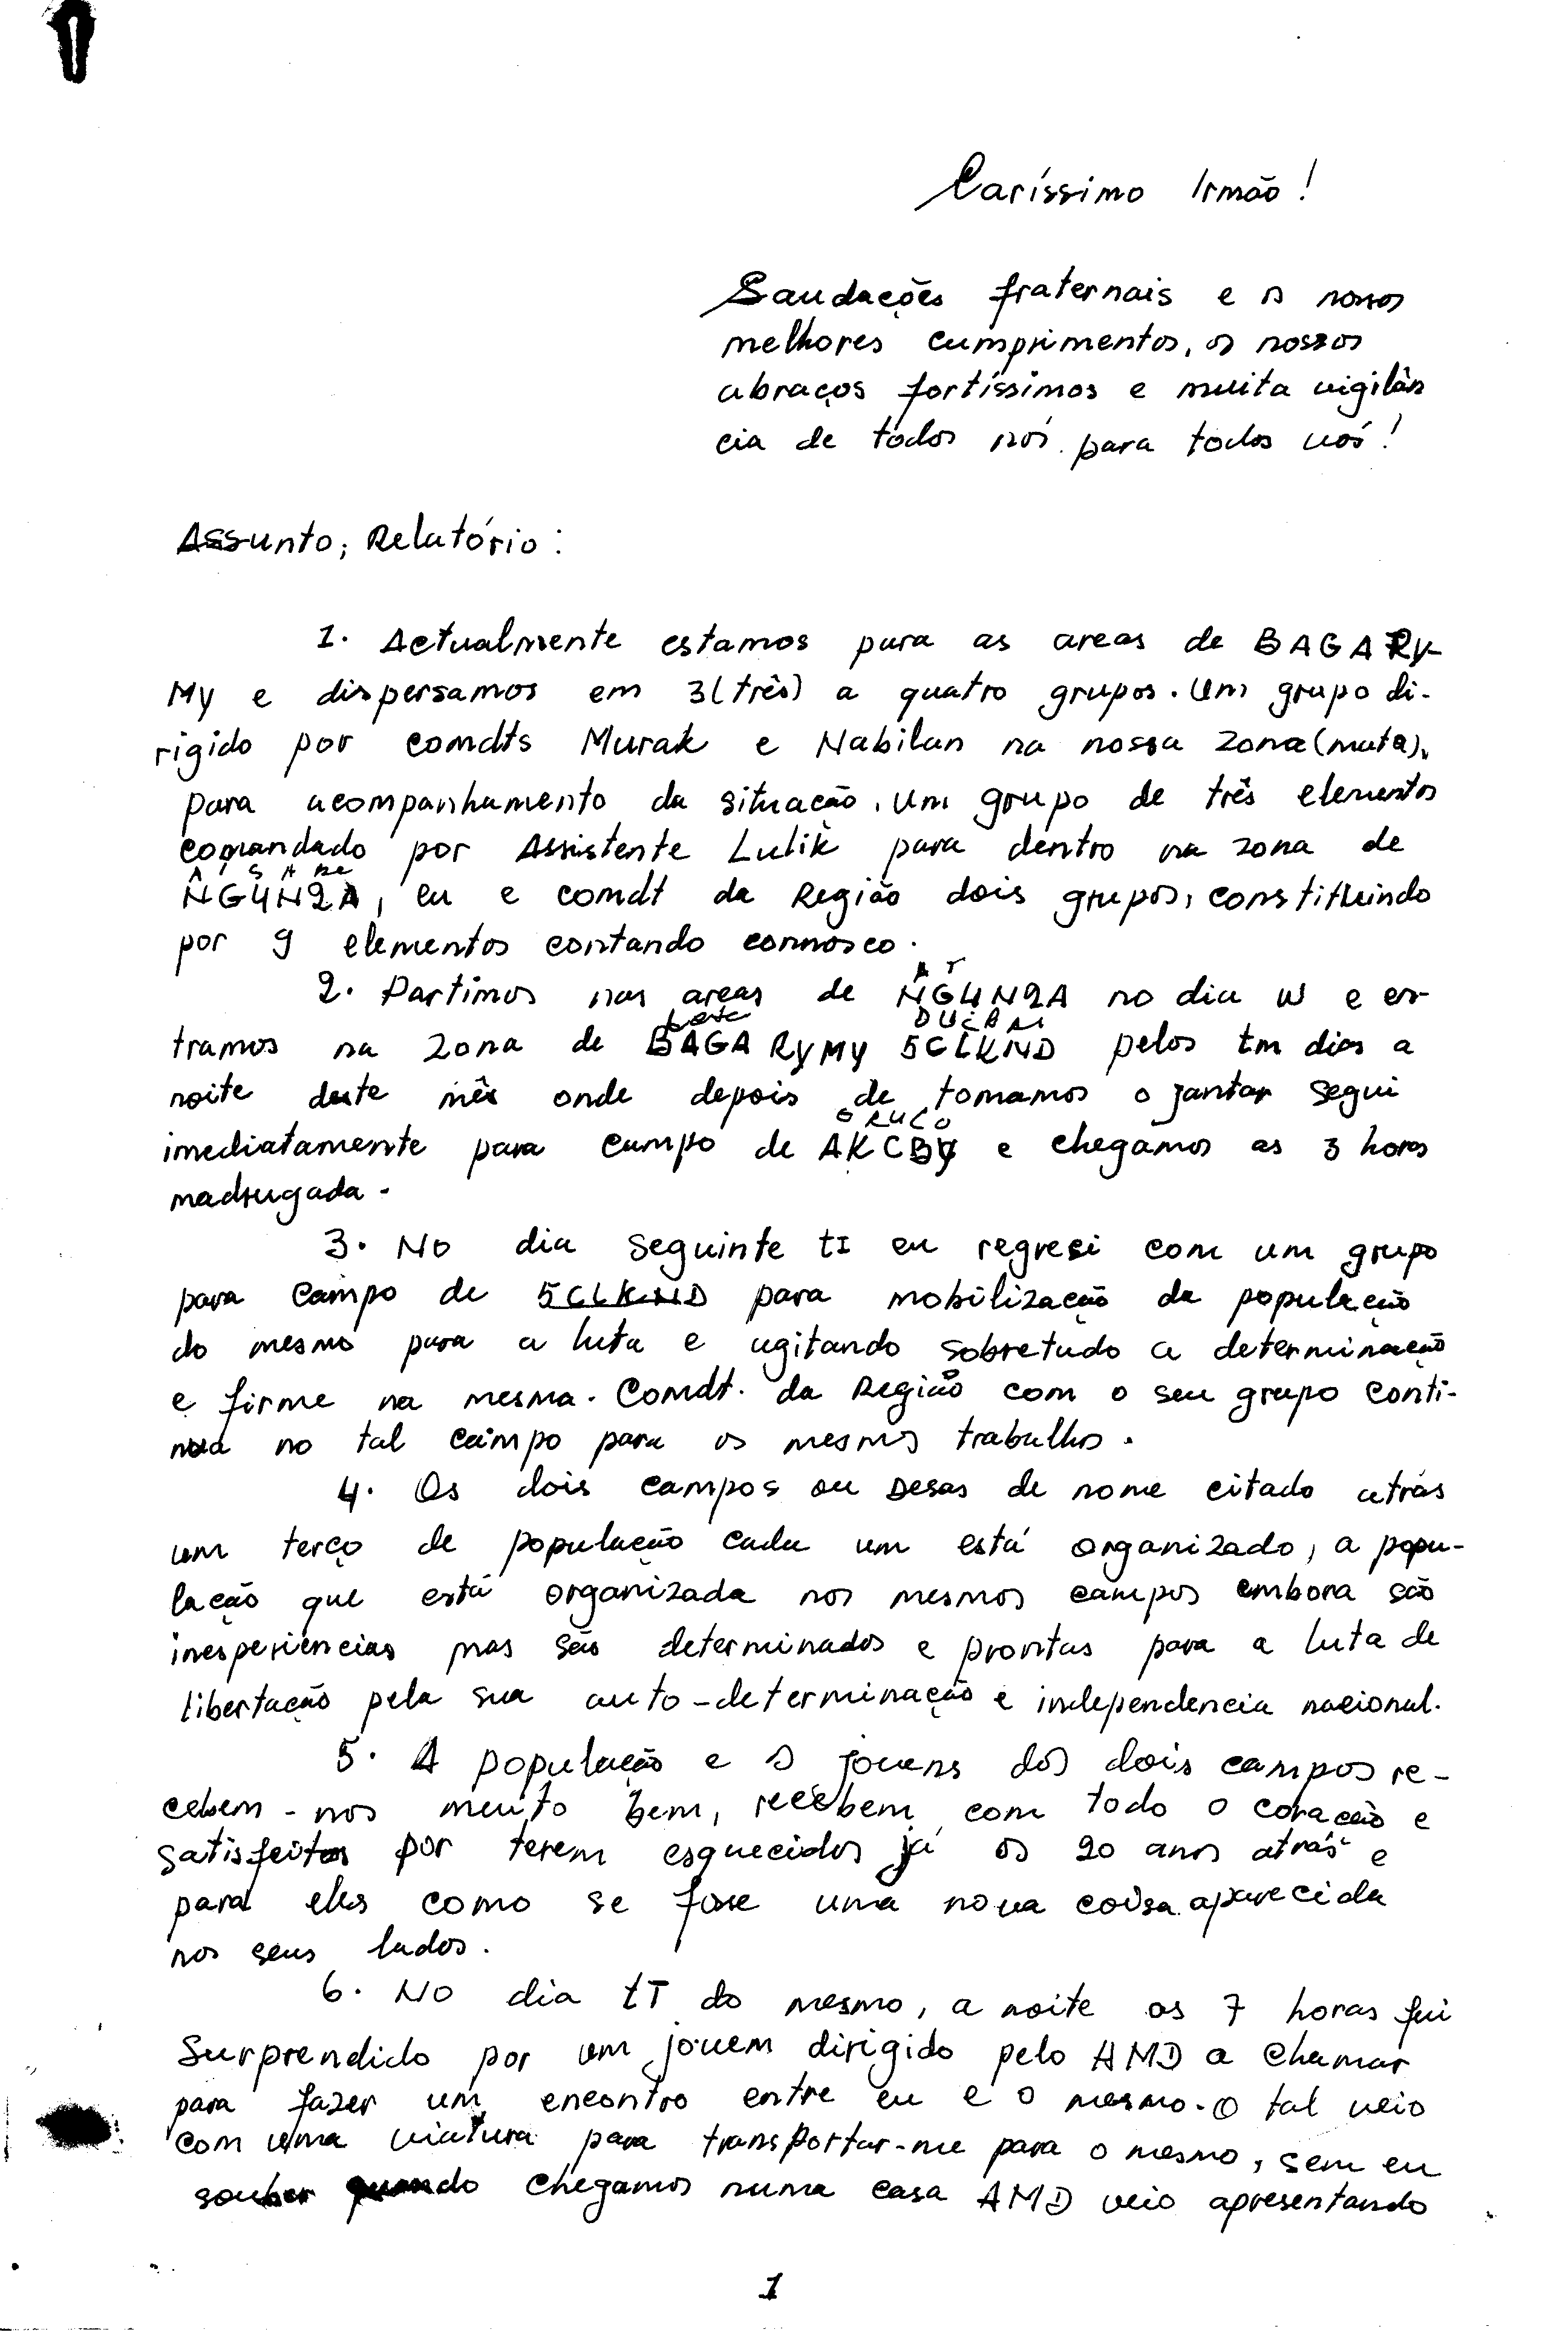 Caríssimo Irmão!
Saudações fraternais e os nossos
melhores cumprimentos, os nossos
abraços fortíssimos e muita vigilân
cia de todos nós para todos vós!
Assunto; Relatório:
1. Actualmente estamos para as areas de BAGA RY-
MY e dispersamos em 3(três) a quatro grupos. Um grupo di-
rigido por comdts Murak e Nabilan na nossa zona (mata),
para acompanhamento da situação. Um grupo de três elementos
comandado por Assistente Lulik para dentro na zona de
NG4N2A, eu e comdt da Região dois grupos, constituindo
por 9 elementos contando connosco.
A T
2. Partimos nas areas de NG4N2A no dia W e en-
DUCARI
tramos na zona de BAGA RYMY 5CLKND pelos tm dias a
noite deste mês onde depois de tomamos o jantar segui
ORUCO
imediatamente para campo de AKCBY e chegamos as 3 horas
madrugada.
3. No dia seguinte tI eu regresi com um grupo
para campo de 5CLKND para mobilização da população
do mesmo para a luta e agitando sobretudo a determinação
e firme na mesma. Comdt. da Região com o seu grupo conti-
nua no tal campo para os mesmos trabalhos.
4. Os dois campos ou Desas de nome citado atrás
um terço de população cada um está organizado, a popu-
lação que está organizada nos mesmos campos embora são
inesperiências mas são determinados e prontas para a luta de
libertação pela sua auto-determinação e independencia nacional.
5. A população e os jovens dos dois campos re-
cebem-nos muito bem, recebem com todo o coração e
satisfeitos por terem esquecidos já os 20 anos atrás e
para eles como se fose uma nova coisa aparecida
nos seus lados.
6. No dia tT do mesmo, a noite as 7 horas fui
surprendido por um jovem dirigido pelo AMD a chamar
para fazer um encontro entre eu e o mesmo. O tal veio
com uma viatura para transportar-me para o mesmo, sem eu
souber quando chegamos numa casa AMD veio apresentando
1